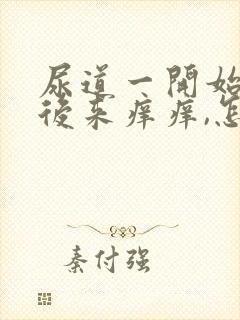 尿道一開始
後來痒痒,怎
秦付强